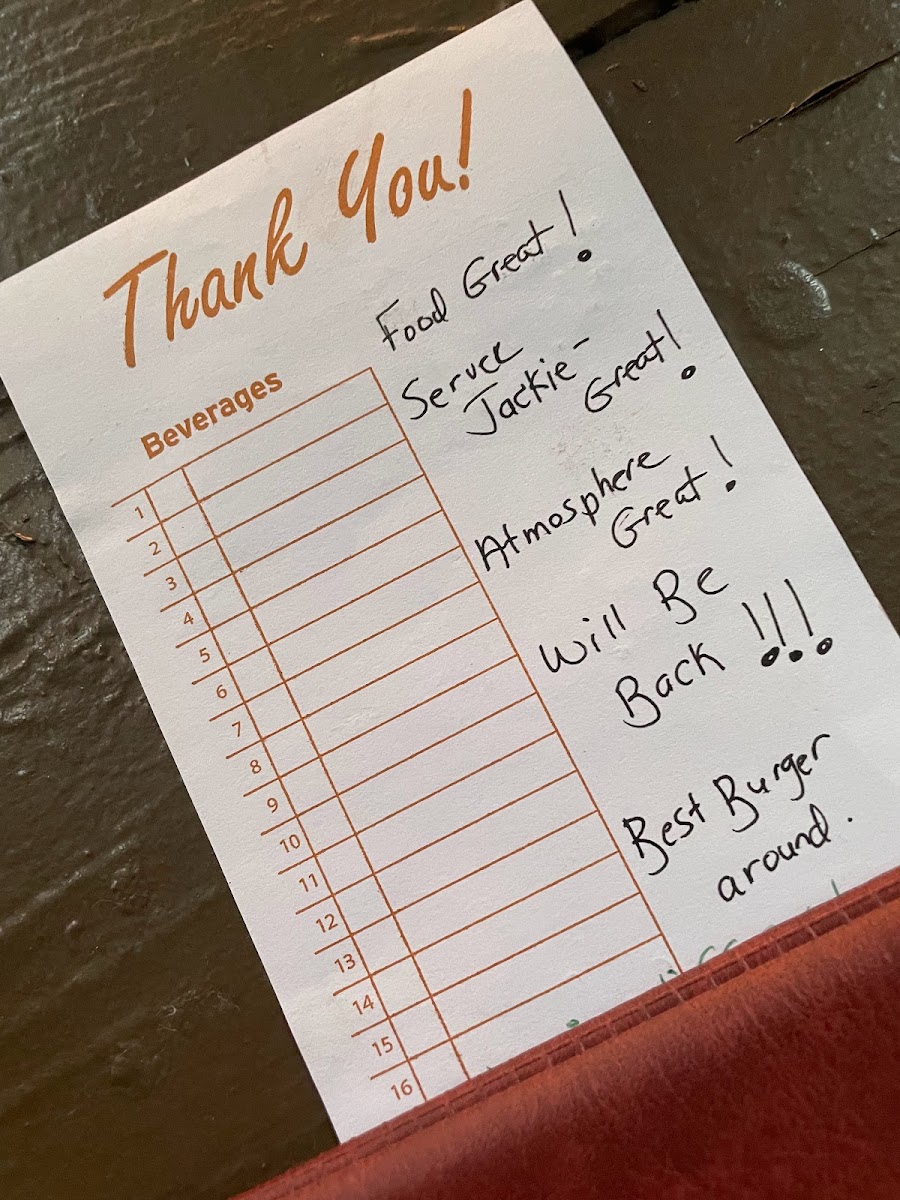 Thank You!
Food Great!
Beverages
Service
Jackie -
Great!
Atmosphere
Great!
Will Be
Back !!!
Best Burger
around.
1
2
3
4
5
6
7
8
9
10
11
12
13
14
15
16